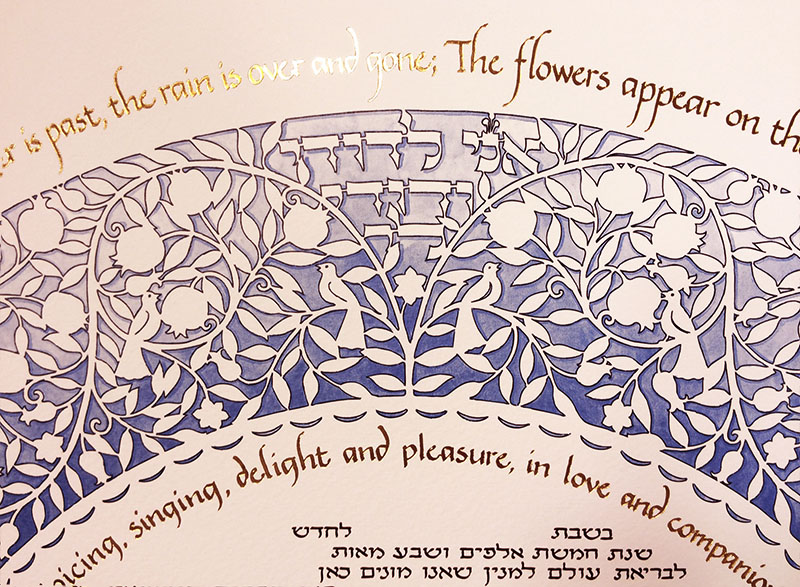 er is past, the rain is over and gone; The flowers appear on th
אני לדודי
ודודי
לי
oicing, singing, delight and pleasure, in love and companio
בשבת לחדש
שנת חמשת אלפים ושבע מאות
לבריאת עולם למנין שאנו מונים כאן